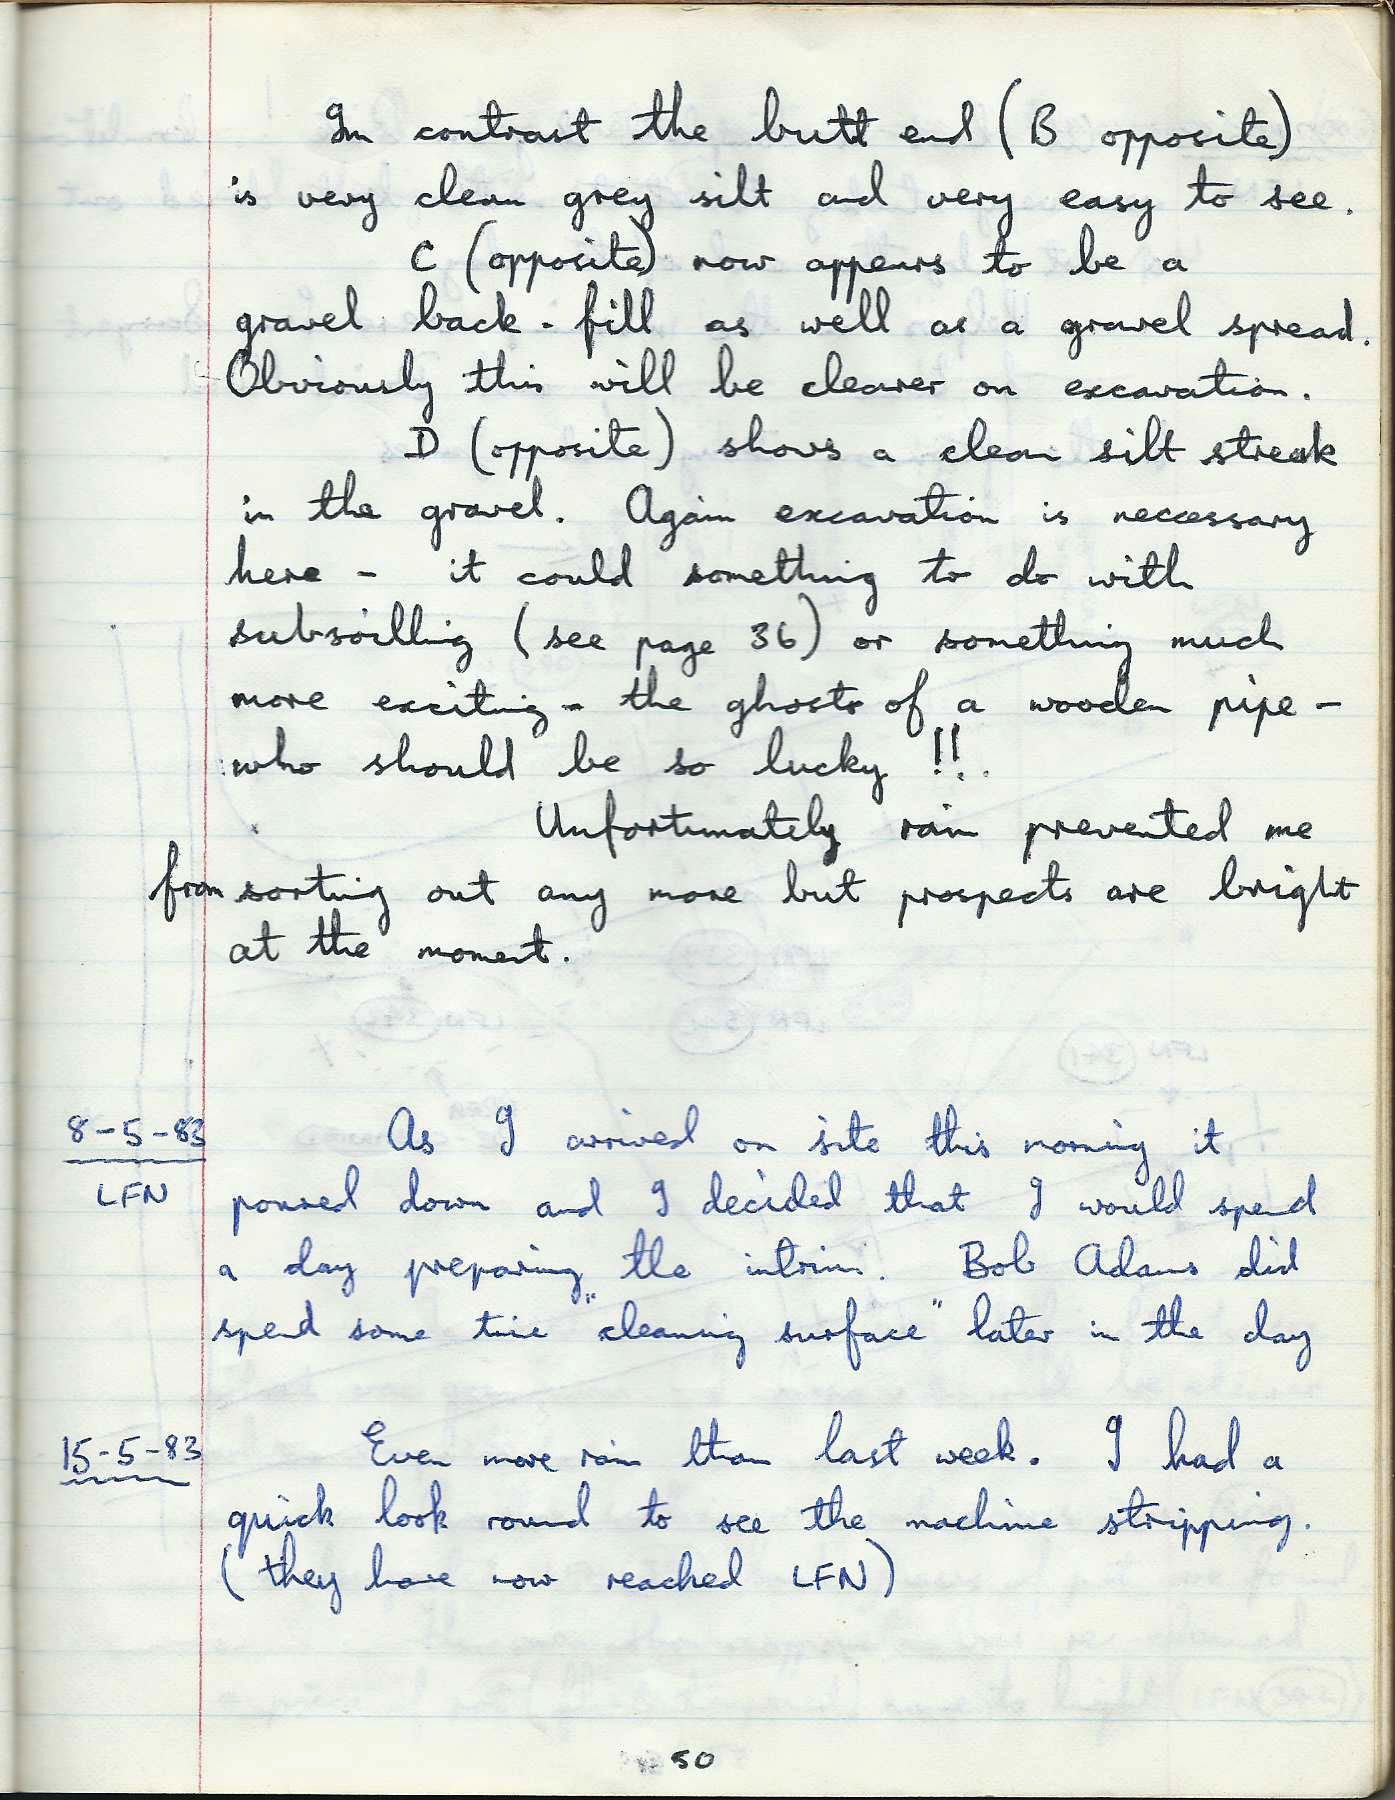 In contrast the butt end (B opposite)
is very clean grey silt and very easy to see.
C (opposite) now appears to be a
gravel back-fill as well as a gravel spread.
Obviously this will be clearer on excavation.
D (opposite) shows a clean silt streak
in the gravel. Again excavation is necessary
here - it could something to do with
subsoilling (see page 36) or something much
more exciting - the ghosts of a wooden pipe -
who should be so lucky !!.
Unfortunately rain prevented me
from sorting out any more but prospects are bright
at the moment.
8-5-83 As I arrived on site this morning it
LFN poured down and I decided that I would spend
a day preparing the intrim. Bob Adams did
spend some time "cleaning surface" later in the day
15-5-83 Even more rain than last week. I had a
quick look round to see the machine stripping.
(they have now reached LFN)
50